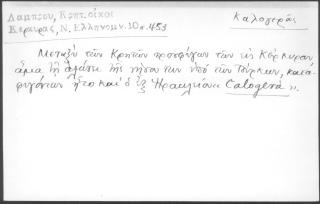 Λάμπρου, Κρητ. οίκοι
Κερκυρας, Ν. Ελληνομν. 10 σ. 453
Καλογεράς
Μεταξύ των Κρητών προσφύγων των εις Κέρκυραν,
άμα τη αλώσει της νήσου των υπό των Τούρκων, κατα-
φυγόντων ήτο και ο εξ Ηρακλείου Calogerà ".